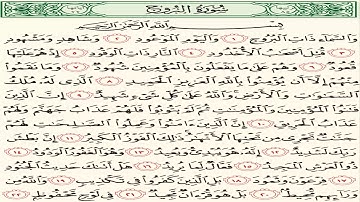 سُورَةُ البُرُوجِ
بِسْمِ اللَّهِ الرَّحْمَٰنِ الرَّحِيمِ
وَالسَّمَاءِ ذَاتِ الْبُرُوجِ ١ وَالْيَوْمِ الْمَوْعُودِ ٢ وَشَاهِدٍ وَمَشْهُودٍ
٣ قُتِلَ أَصْحَابُ الْأُخْدُودِ ٤ النَّارِ ذَاتِ الْوَقُودِ ٥ إِذْ هُمْ عَلَيْهَا
قُعُودٌ ٦ وَهُمْ عَلَىٰ مَا يَفْعَلُونَ بِالْمُؤْمِنِينَ شُهُودٌ ٧ وَمَا نَقَمُوا
مِنْهُمْ إِلَّا أَن يُؤْمِنُوا بِاللَّهِ الْعَزِيزِ الْحَمِيدِ ٨ الَّذِي لَهُ مُلْكُ
السَّمَاوَاتِ وَالْأَرْضِ وَاللَّهُ عَلَىٰ كُلِّ شَيْءٍ شَهِيدٌ ٩ إِنَّ الَّذِينَ
فَتَنُوا الْمُؤْمِنِينَ وَالْمُؤْمِنَاتِ ثُمَّ لَمْ يَتُوبُوا فَلَهُمْ عَذَابُ جَهَنَّمَ وَلَهُمْ
عَذَابُ الْحَرِيقِ ١٠ إِنَّ الَّذِينَ آمَنُوا وَعَمِلُوا الصَّالِحَاتِ لَهُمْ
جَنَّاتٌ تَجْرِي مِن تَحْتِهَا الْأَنْهَارُ ذَٰلِكَ الْفَوْزُ الْكَبِيرُ ١١ إِنَّ بَطْشَ
رَبِّكَ لَشَدِيدٌ ١٢ إِنَّهُ هُوَ يُبْدِئُ وَيُعِيدُ ١٣ وَهُوَ الْغَفُورُ الْوَدُودُ ١٤
ذُو الْعَرْشِ الْمَجِيدُ ١٥ فَعَّالٌ لِّمَا يُرِيدُ ١٦ هَلْ أَتَاكَ حَدِيثُ الْجُنُودِ
١٧ فِرْعَوْنَ وَثَمُودَ ١٨ بَلِ الَّذِينَ كَفَرُوا فِي تَكْذِيبٍ ١٩ وَاللَّهُ مِن
وَرَائِهِم مُّحِيطٌ ٢٠ بَلْ هُوَ قُرْآنٌ مَّجِيدٌ ٢١ فِي لَوْحٍ مَّحْفُوظٍ ٢٢